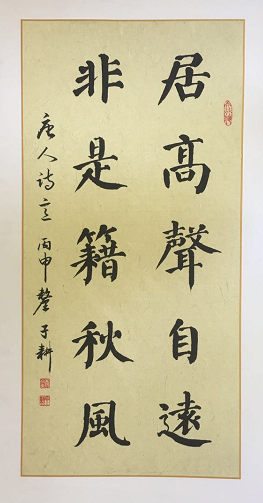 居高聲自遠
非是籍秋風
唐人詩意 丙申 子耕